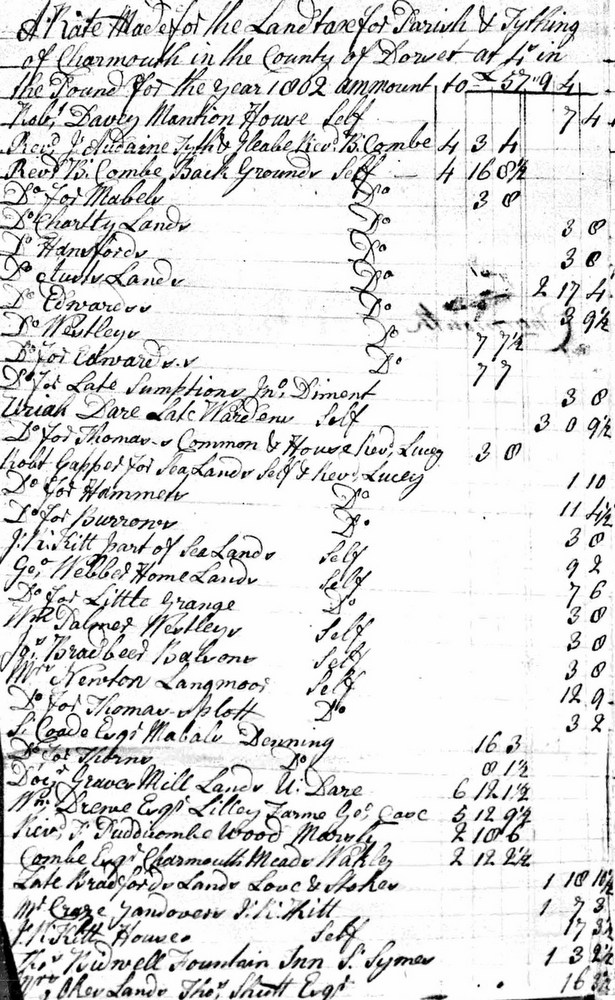 A Rate Made for the Land tax for Parish & Tything
of Charmouth in the County of Dorset at 4s in
the Pound for the Year 1802 ammount to £57"9 4
Robt Davey Mantion House Self 7 4
Revd J. Audaine Tyth & Gleabe Revd B. Combe 4 3 4
Revd B. Combe Back Grounds Self 4 16 8½
Do for Mabels Do 3 8
Do Charity Lands Do 3 8
Do Hansfords Do 3 8
Do Lands Do 2 17 4
Do Edwards Do 3 9½
Do Westleys Do 7 7½
Do for Edwards.s Do 7 7
Do for Late Sumptions Jno Diment 3 8
Uriah Dare Late Wardens Self 3 0 9½
Do for Thomas.s Common & House Revd Lucey 3 8
Robt Gapper for Sea Lands Self & Revd Lucey 1 10
Do for Hammets Do 11 4½
Do for Burrows Do 3 8
J. W. Kitt part of Sea Lands Self 9 2
Geo Webber Home Lands Self 7 6
Do for Little Grange Do 3 8
Wm Palmer Westleys Self 3 8
Jas Bradbeer Balsons Self 3 8
Mr Newton Langmoor Self 12 9
Do for Thomas Splott Do 3 2
S. Coade Esqr Mabals Denning 16 3
Do for Do 8 1½
Graves Mill Lands U. Dare 6 12 1½
Wm Drewe Esqr Lilley Farme Geo 5 12 9½
Revd F. Pudduombe Wood Marsh 2 18 6
Combe Esqr Charmouth Meads Wakley 2 12 2½
Late Bradfords Lands Love & Stokes 1 18 10½
Mr Craze Sandovers J. W. Kitt 1 7 3
J. W. Kitt House Self 17 3½
Thos Bidwell Fountain Inn S. Symes 1 3 2½
Okes Lands Thos Shutt Esqr 16 3½